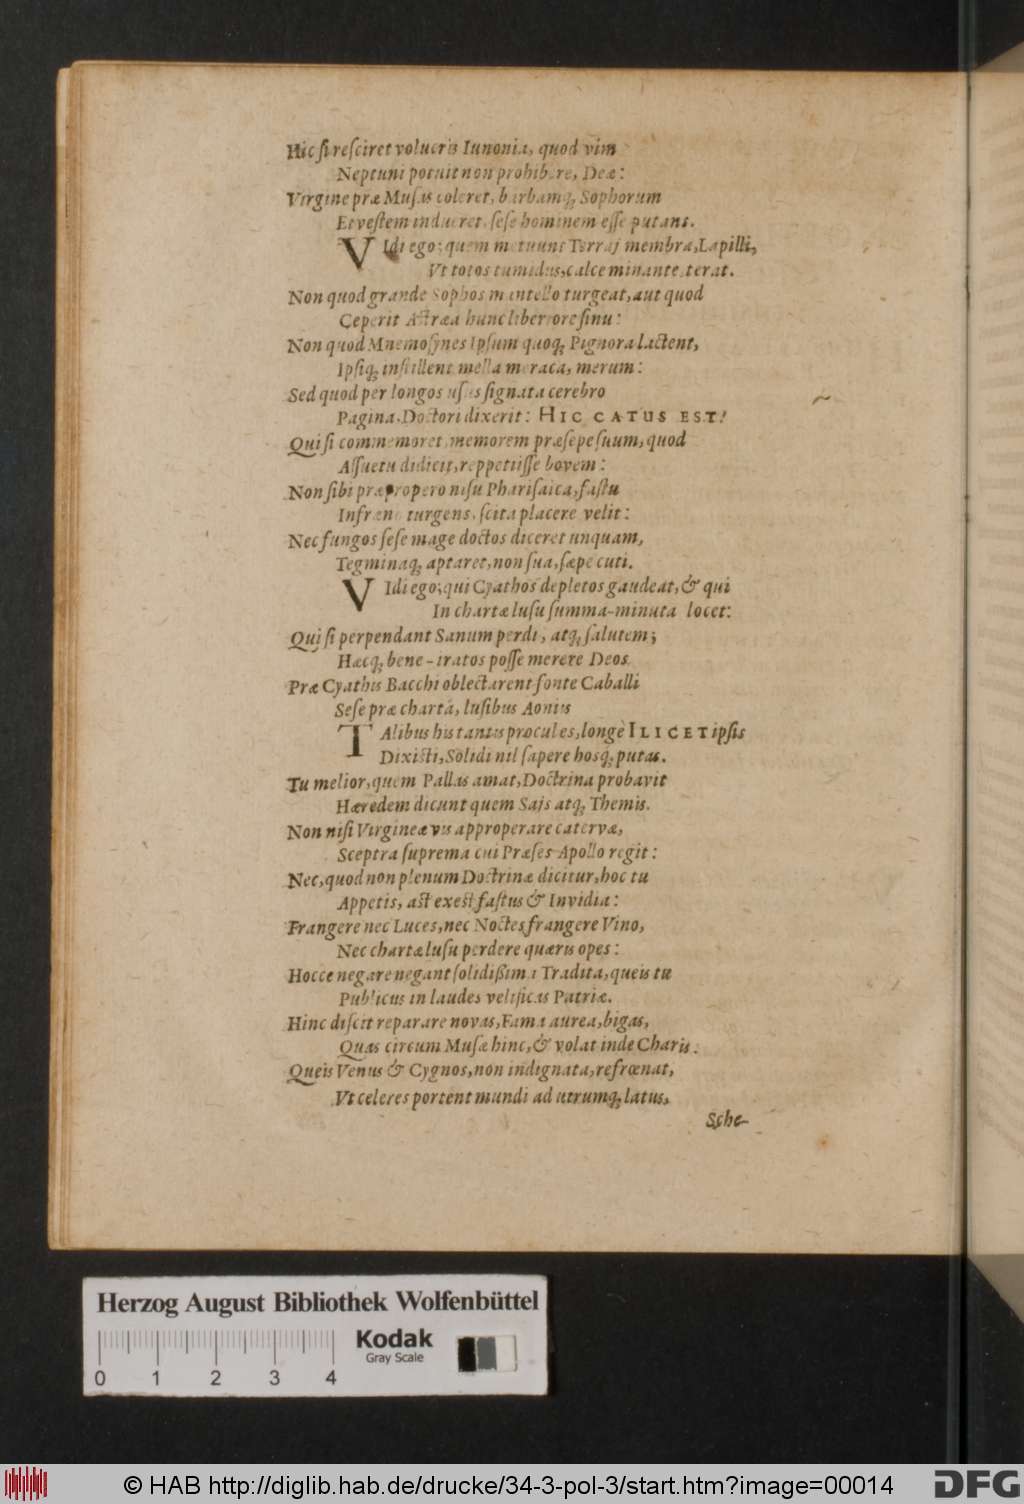 Hic si resciret volucris Iunonia, quod vim
Neptuni potuit non prohibere, Deæ:
Virgine præ Musas coleret, barbamq; Sophorum
Et vestem indueret, sese hominem esse putans.
VIdi ego; quem metuunt Terraj membra, Lapilli,
Vt totos tumidus, calce minante, terat.
Non quod grande Sophos mantello turgeat, aut quod
Ceperit Astræa hunc liberiore sinu:
Non quod Mnemosynes Ipsum quoq; Pignora lactent,
Ipsiq; instillent mella meraca, merum:
Sed quod per longos usus signata cerebro
Pagina, Doctori dixerit: HIC CATUS EST!
Qui si commemoret, memorem præsepe suum, quod
Assuetu didicit, reppetiisse bovem:
Non sibi præpropero nisu Pharisaica, fastu
Infræne turgens, scita placere velit:
Nec fungos sese mage doctos diceret unquam,
Tegminaq; aptaret, non sua, sæpe cuti.
VIdi ego; qui Cyathos depletos gaudeat, & qui
In chartæ lusu summa-minuta locet:
Qui si perpendant Sanum perdi, atq; salutem;
Hæcq; bene-iratos posse merere Deos.
Præ Cyathis Bacchi oblectarent fonte Caballi
Sese præ chartâ, lusibus Aoniis
TAlibus his tantis procul es, longè ILICET ipsis
Dixisti, Solidi nil sapere hosq; putas.
Tu melior, quem Pallas amat, Doctrina probavit
Hæredem dicunt quem Sajs atq; Themis.
Non nisi Virgineæ vis approperare catervæ,
Sceptra suprema cui Præses Apollo regit:
Nec, quod non plenum Doctrinæ dicitur, hoc tu
Appetis, ast exest fastus & Invidia:
Frangere nec Luces, nec Noctes frangere Vino,
Nec chartæ lusu perdere quæris opes:
Hocce negare negant solidißima Tradita, queis tu
Publicus in laudes velificas Patriæ.
Hinc discit reparare novas, Fama aurea, bigas,
Quas circum Musæ hinc, & volat inde Charis:
Queis Venus & Cygnos, non indignata, refrœnat,
Vt celeres portent mundi ad utrumq; latus,
Sche-
Herzog August Bibliothek Wolfenbüttel
Kodak
Gray Scale
0 1 2 3 4
© HAB http://diglib.hab.de/drucke/34-3-pol-3/start.htm?image=00014
DFG